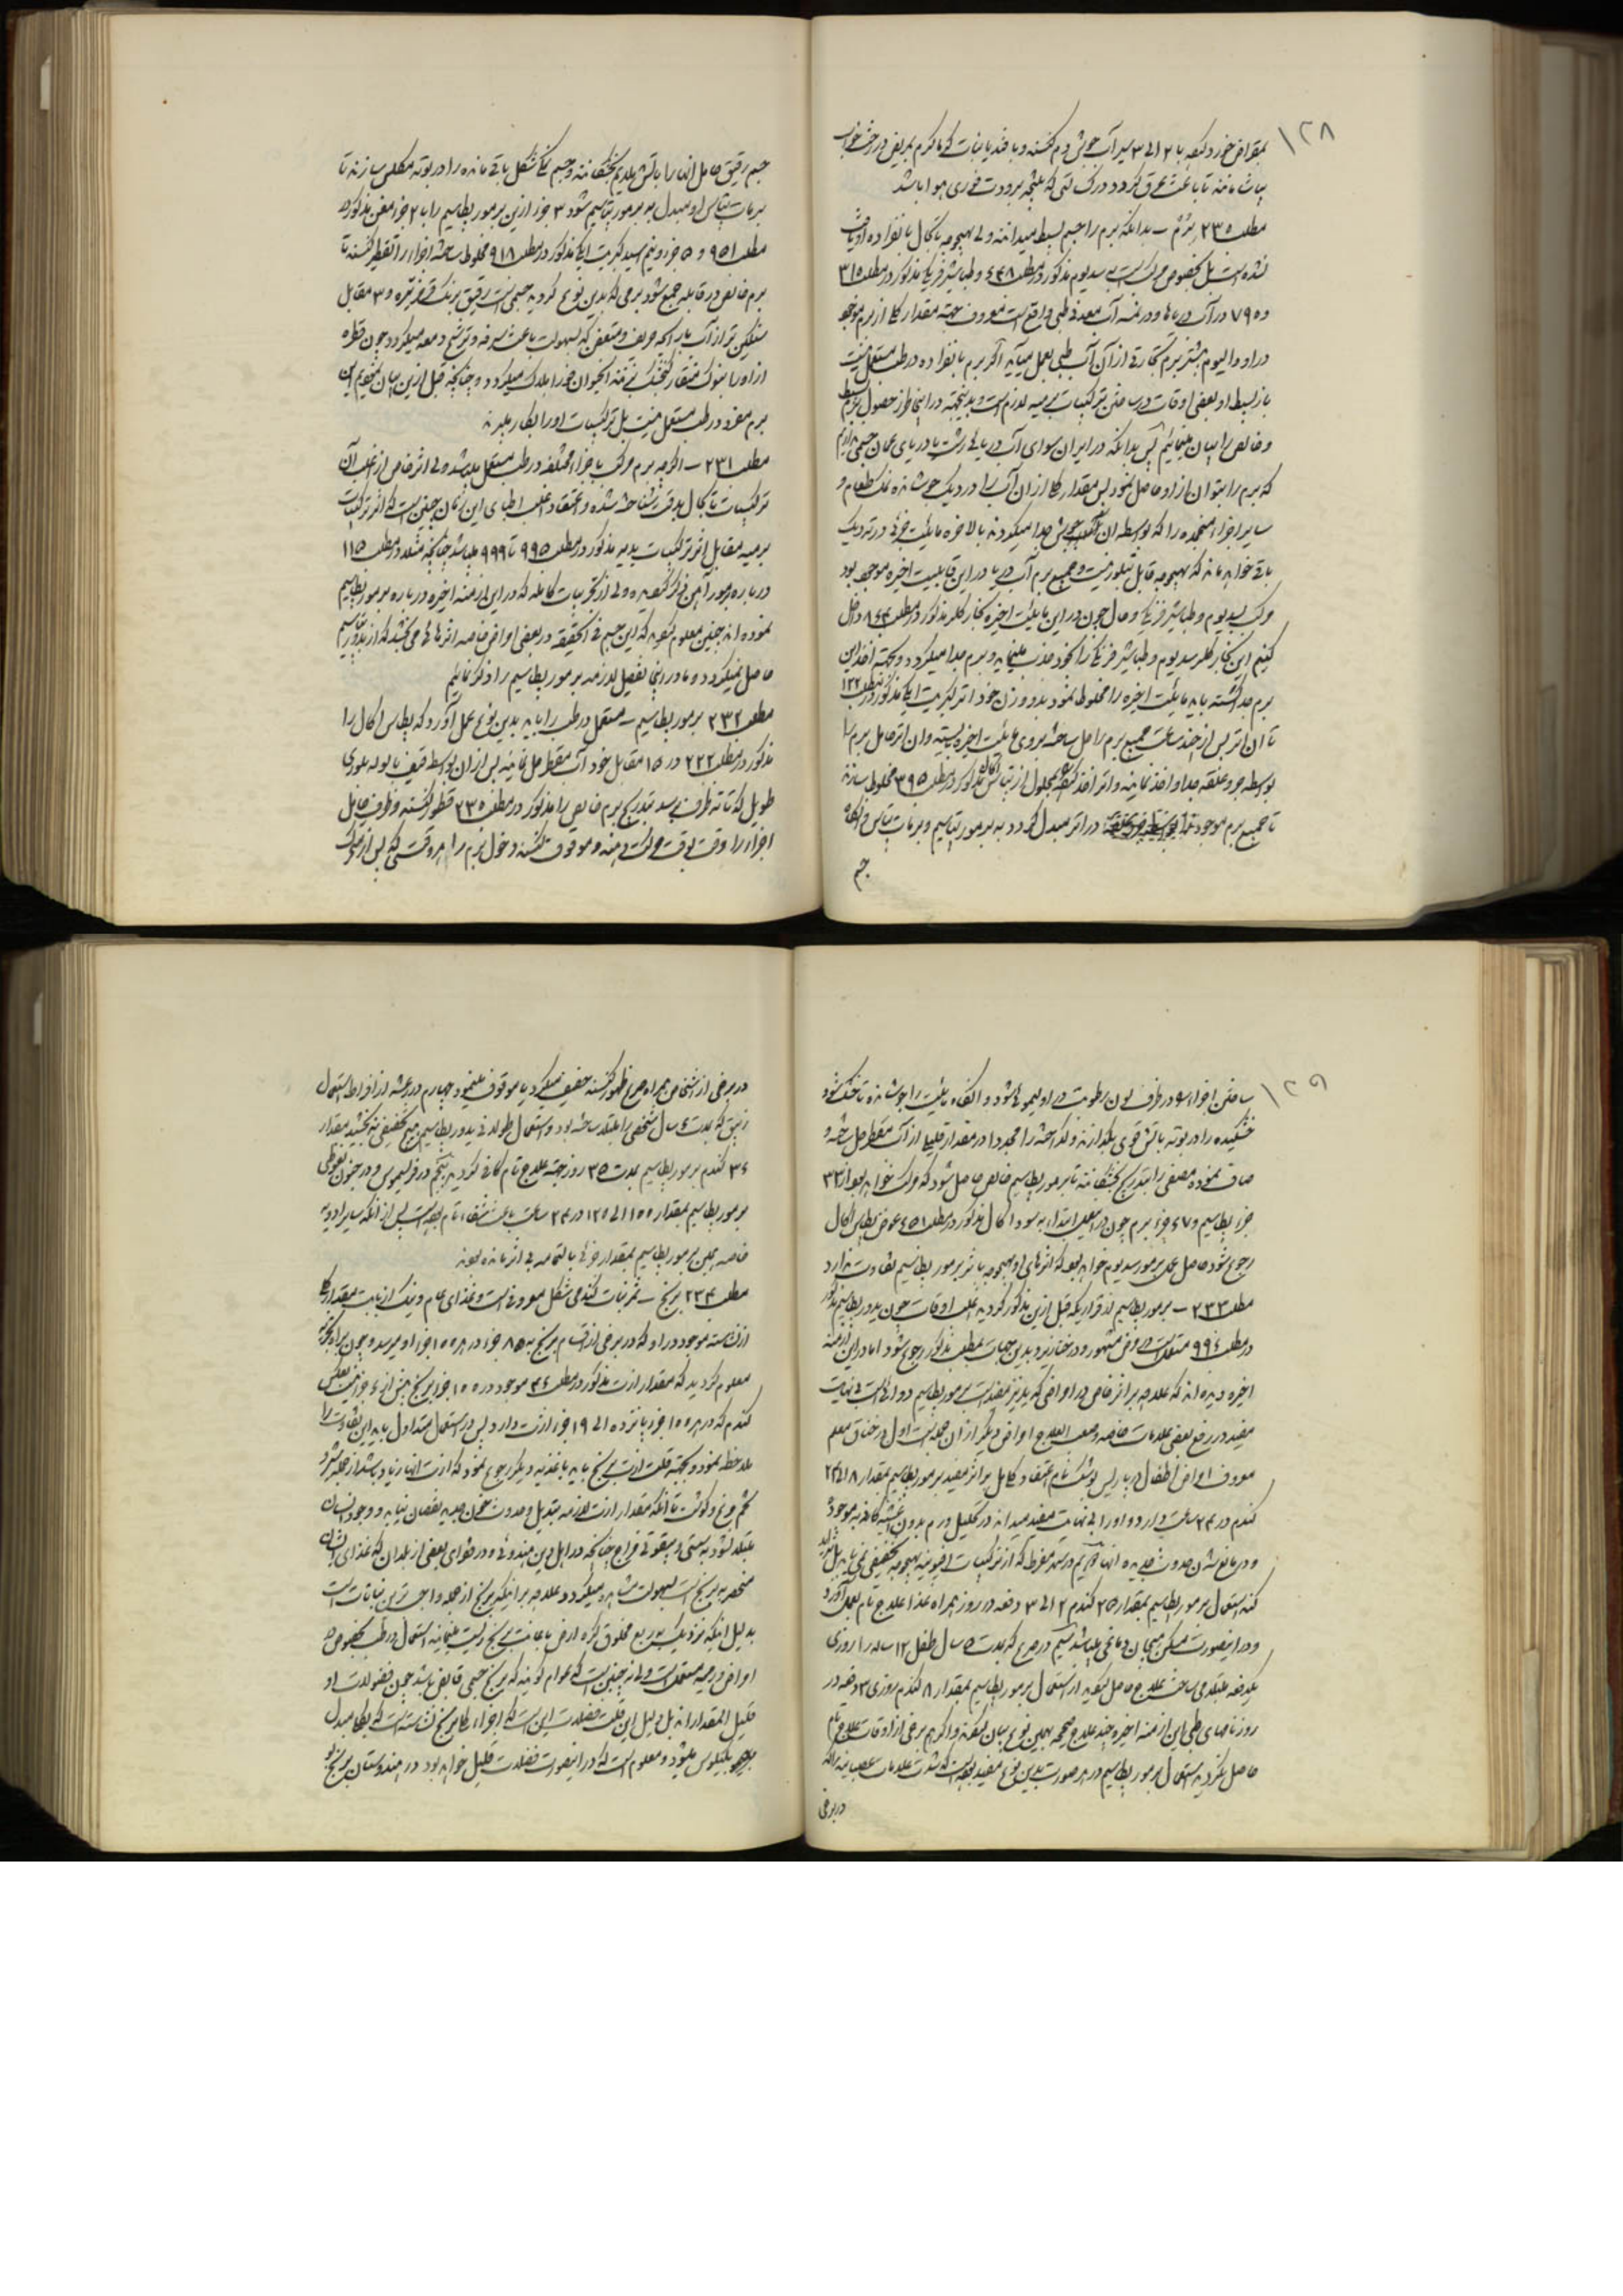 ۱۲۸
بمقراض خورد نکنه با ۲ الی ۳ سیر آب جوش دم کنند و با قند یا نبات گرماگرم بمریض در رخت خواب
تا باعث عرق گردد در که نتیجه برودت فوری هوا باشد
مطلب ۲۳۰ برم – بدانکه برم را جسم بسیط میدانند ولی بهیچوجه تا کال بانفراده او یافت
نشده است بل بخصوص مرکب است به سدیوم مذکور در مطلب ۴۴۸ و طباشیر فرنگی مذکور در مطلب ۳۱۵
و ۷۹۵ در آب دریاها و در نمد آب معدنی طبی واقع است معروف جهة مقدار کلی از برم موجود
در او و الیوم بیشتر برم تجارتی از آن آب طبی بعمل میآید اگر برم بانفراده در طب مستعمل نیست
باز بسیط او بعضی اوقات در ساختن ترکیبات برمیه لازم است و بدینجهة در اینجا طرز حصول برم بسیط
و خالص را بیان مینمائیم پس بدانکه در ایران سوای آب دریای رشت یا دریای عمان جسمی نداریم
که برم را بتوان از او حاصل نمود پس مقدار کلی از آن آب را در دیک جوشانده نمک طعام و
سایر اجزاء منجمده را که بواسطه آن جوش جدا میگردند بالاخره مایعیت جزئی در ته دیک
باقی خواهد ماند که بهیچوجه قابل تبلور نیست و جمیع برم آب دریا در این مایعیت اخیره موجود بود
مرکب بسدیوم و طباشیر فرنگی و حال چون در این مایعیت اخیره بخار کلر مذکور در مطلب ۸۶۴ داخل
کنیم این بخار کلر سدیوم و طباشیر فرنگی را بخود جذب مینماید و برم جدا میگردد و بجهة اخذ این
برم جدا گشته باید مایعیت اخیره را مخلوط نمود بدو وزن خود اتر کبریت ایک مذکور در مطلب ۱۲۲
تا آن اتر پس از چند ساعت جمیع برم را حل ساخته بروی مایعیت اخیره بایستد و آن اتر حامل برم را
بوسطه جدا و اخذ نمایند و اتر اخذ شده بمحلول از پتاس اکال مذکور در مطلب ۳۹۵ مخلوط سازند
تا جمیع برم موجود در اتر مبدل گردد به برمور پتاسیم و برمات پتاس و آنگاه
جسم
جسم رقیق حامل آنها را باتش ملایم بخشکانند و جسم نمکی شکل باقی مانده را در بوته مکلس سازند تا
برمات پتاس او مبدل به برمور پتاسیم شود ۳ جزء از این برمور پطاسیم را با ۲ جزء مغن مذکور در
مطلب ۹۵۱ و ۵ جزء و نیم اسید کبریت ایک مذکور در مطلب ۹۱۸ مخلوط ساخته اجزاء را تقطیر کنند تا
برم خالص در قابله جمع شود برمی که بدین نوع گردید جسمی است رقیق برنک قرمز تیره و ۳ مقابل
سنگین تر از آب با رایحه حریف و متعفن که بسهولت باعث سرفه و ترشح دمعه میگردد چون قطره
از او را بنوک منقار گنجشک نهند آنحیوان فورا هلاک میگردد و چنانچه قبل از این بیان نمودیم این
برم مفرد در طب مستعمل نیست بل ترکیبات او را بکار ببرند
مطلب ۲۳۱ – اگرچه برم مرکب باجزاء مختلفه در طب مستعمل میباشد ولی اثر خاص از اغلب آن
ترکیبات تا کال بدقت شناخته نشده و اعتقاد اغلب اطبای این زمان چنین است که اثر ترکیبات
برمیه مقابل اثر ترکیبات یدیه مذکور در مطلب ۹۹۵ تا ۹۹۹ میباشد چنانچه مثلا در مطلب ۱۱۵
درباره برمور آهن ذکر نمودیم ولی از تجربیات کامله که در این ازمنه اخیره درباره برمور پطاسیم
نموده اند چنین معلوم نمود که این جسم فی الحقیقه در بعضی امراض خاصه اثرهائی می بخشد که از یدور پطاسیم
حاصل نمیگردد و ما در اینجا تفصیل لازمه برمور پطاسیم را ذکر نمائیم
مطلب ۲۳۲ برمور پطاسیم – مستعمل در طب را باید بدین نوع بعمل آورد که پطاس اکال را
مذکور در مطلب ۲۲۲ در ۱۵ مقابل خود آب مقطر حل نمائید پس از آن بواسطه قیف با لوله بلوری
طویل که تا ته ظرف برسد بتدریج برم خالص را مذکور در مطلب ۲۳۰ قطره قطره کنند و ظرف حامل
اجزاء را وقت بوقت حرکت دهند و موقوف کنند دخول برم را هر وقتی که پس از حرکت
۱۲۹
ساختن اجزاء در ظرف لون رطوبت او لیموئی شود و آنگاه مایعیت را جوشانند تا خشک شود
خشکیده را در بوته باتش قوی بگدازند و گداخته را مجددا در مقدار قلیل از آب مقطر حل ساخته و
صاف نموده مصفی را بتدریج بخشکانند تا برمور پطاسیم خالص حاصل شود که مرکب خواهد بود از ۳۳
جزء پطاسیم و ۶۷ جزء برم چون در این عمل ابتداء به سود اکال مذکور در مطلب ۴۵۱ عوض پطاس اکال
رجوع شود حاصل عمل برمور سدیوم خواهد بود که اثرهای او بهیچوجه با اثر برمور پطاسیم تفاوت ندارد
مطلب ۲۳۳ – برمور پطاسیم از قراریکه قبل از این مذکور گردید اغلب اوقات چون یدور پطاسیم مذکور
در مطلب ۹۹۶ مستعمل است در امراض مشهور و در خنازیر و بدین جهات بمطلب مذکور رجوع شود اما در این ازمنه
اخیره دیده اند که علاوه بر اثر خاص در امراضی که یدیز مفید است برمور پطاسیم دوائی است بی نهایت
مفید در رفع بعضی علامات خاصه و صعب العلاج امراض دیگر از آن جمله است اول در خناق معلم
معروف امراض اطفال در پاریس اعتقاد کامل بر اثر مفید برمور پطاسیم بمقدار ۸ الی ۲۴
گندم در ۲۴ ساعت دارد و او را بی نهایت مفید میدانند در تحلیل ورم بدون اغشیه کاذبه موجود
و در مانع شدن حدوث جدیده آنها دویم در سهر مفرط که از ترکیبات افیونیه بهیچوجه تخفیفی نمی یابد
کند استعمال برمور پطاسیم بمقدار ۲۵ گندم ۲ الی ۳ دفعه در روز همراه غذا علاج تام بعمل آورد
و در اینصورت مسکن هیجان دماغی میباشد سیم در صرع که بمدت ۵ سال طفل ۱۲ ساله را روزی
یکدفعه مبتلا می ساخت علاج حاصل نمود از استعمال برمور پطاسیم بمقدار ۸ گندم روزی ۳ دفعه در
روزنامهای طبی این ازمنه اخیره چند علاج صحیحه بهمین نوع بیان نمودند و اگرچه برخی از اوقات علاج تام
حاصل نگردید استعمال برمور پطاسیم در هر صورت بدین نوع مفید بوده است که شدت علامات عصبانیه
در برخی
در برخی از اشخاص همراه صرع ظهور کنند خفیف میگردید یا موقوف مینمود چهارم در رعشه از افراط استعمال
زیبق که بمدت ۴ سال شخصی را مبتلا ساخته بود و استعمال طولانی یدور پطاسیم هیچ تخفیفی نه بخشید بمقدار
۳۶ گندم برمور پطاسیم بمدت ۳۵ روز جهة علاج تام کافی گردید پنجم در فریسموس و در جنون نعوظی
برمور پطاسیم بمقدار ۱۰۰ الی ۱۲۵ در ۲۴ ساعت باعث شفاء تام بوده است پس از آنکه سایر ادویه
خاصه همین برمور پطاسیم بمقدار جزئی بالتمامه بی اثر مانده بودند
مطلب ۲۳۴ برنج – ثمر نبات گندمی شکل معروفی است و غذای عام و نیک از بابت مقدار کلی
از نشاسته موجود در او که در برخی از اقسام برنج به ۸۵ جزء در هر ۱۰۰ جزء او میرسد و چون بر او بتجربه
معلوم گردید که مقدار ازت مذکور در مطلب ۳۶ موجود در ۱۰۰ جزء برنج بیش از ۶ جزء نیست بعکس
گندم که در هر ۱۰۰ جزء پانزده الی ۱۹ جزء ازت دارد پس در استعمال متداول باید این تفاوت را
ملاحظه نمود و بجهة قلت ازت برنج باید باغذیه دیگر رجوع نمود که ازت آنها زیاد باشد از جمله
تخم مرغ و گوشت تا آنکه مقدار ازت لازمه تبدیل و حدوث خون جدید نقصان نیابد و وجود انسان
مبتلا نشود به سستی و بیقوتی مزاج چنانچه در اهالی چین هندوئی و در فقرای بعضی از بلدان که غذای ایشان
منحصر به برنج است بسهولت مشاهده میگردد و علاوه بر اینکه برنج از جمله واجب ترین نباتات است
بدلیل اینکه نزدیک بربع مخلوق کره ارض باعانت برنج زیست مینمایند استعمال در طب بخصوص در
امراض ورمیه مستعمل است ولی نه چنین است که عوام گویند که برنج جسمی قابض باشد چون فضولات او
قلیل المقدارند بل دلیل این قلت فضلات این است که اجزاء کلی برنج نشاسته است که بکلی مبدل
بکیلوس میشود و معلوم است که در اینصورت فضلات قلیل خواهد بود در هندوستان برنج بو